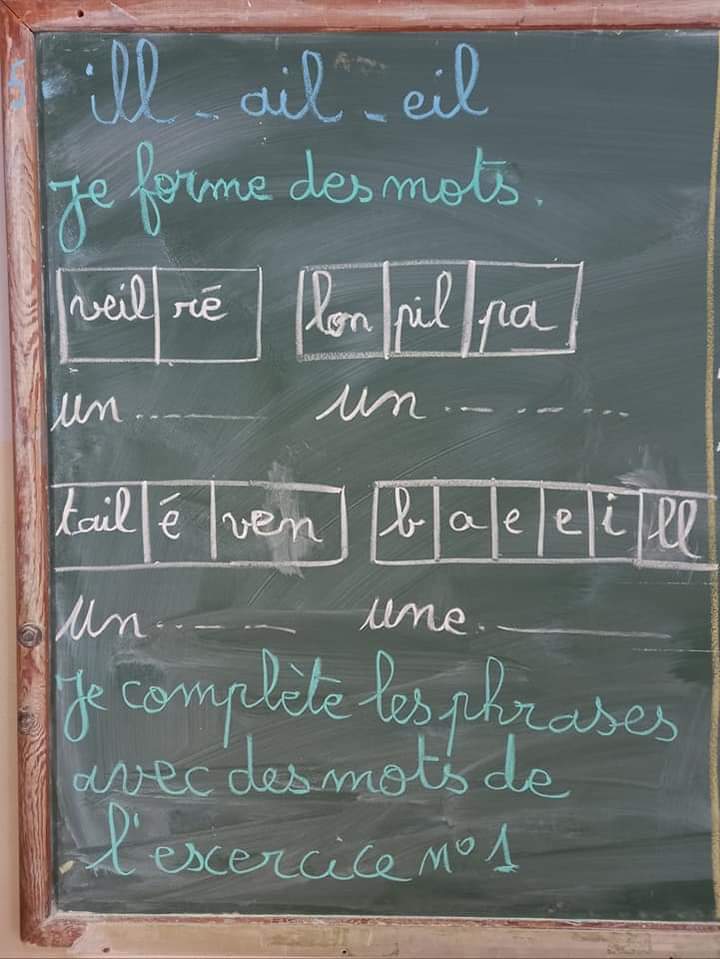 ill - ail - eil
Je forme des mots.
veil ré lon pil pa
un ........ un ........
tail é ven b a e e i ll
un ........ une ........
Je complète les phrases
avec des mots de
l'exercice n° 1